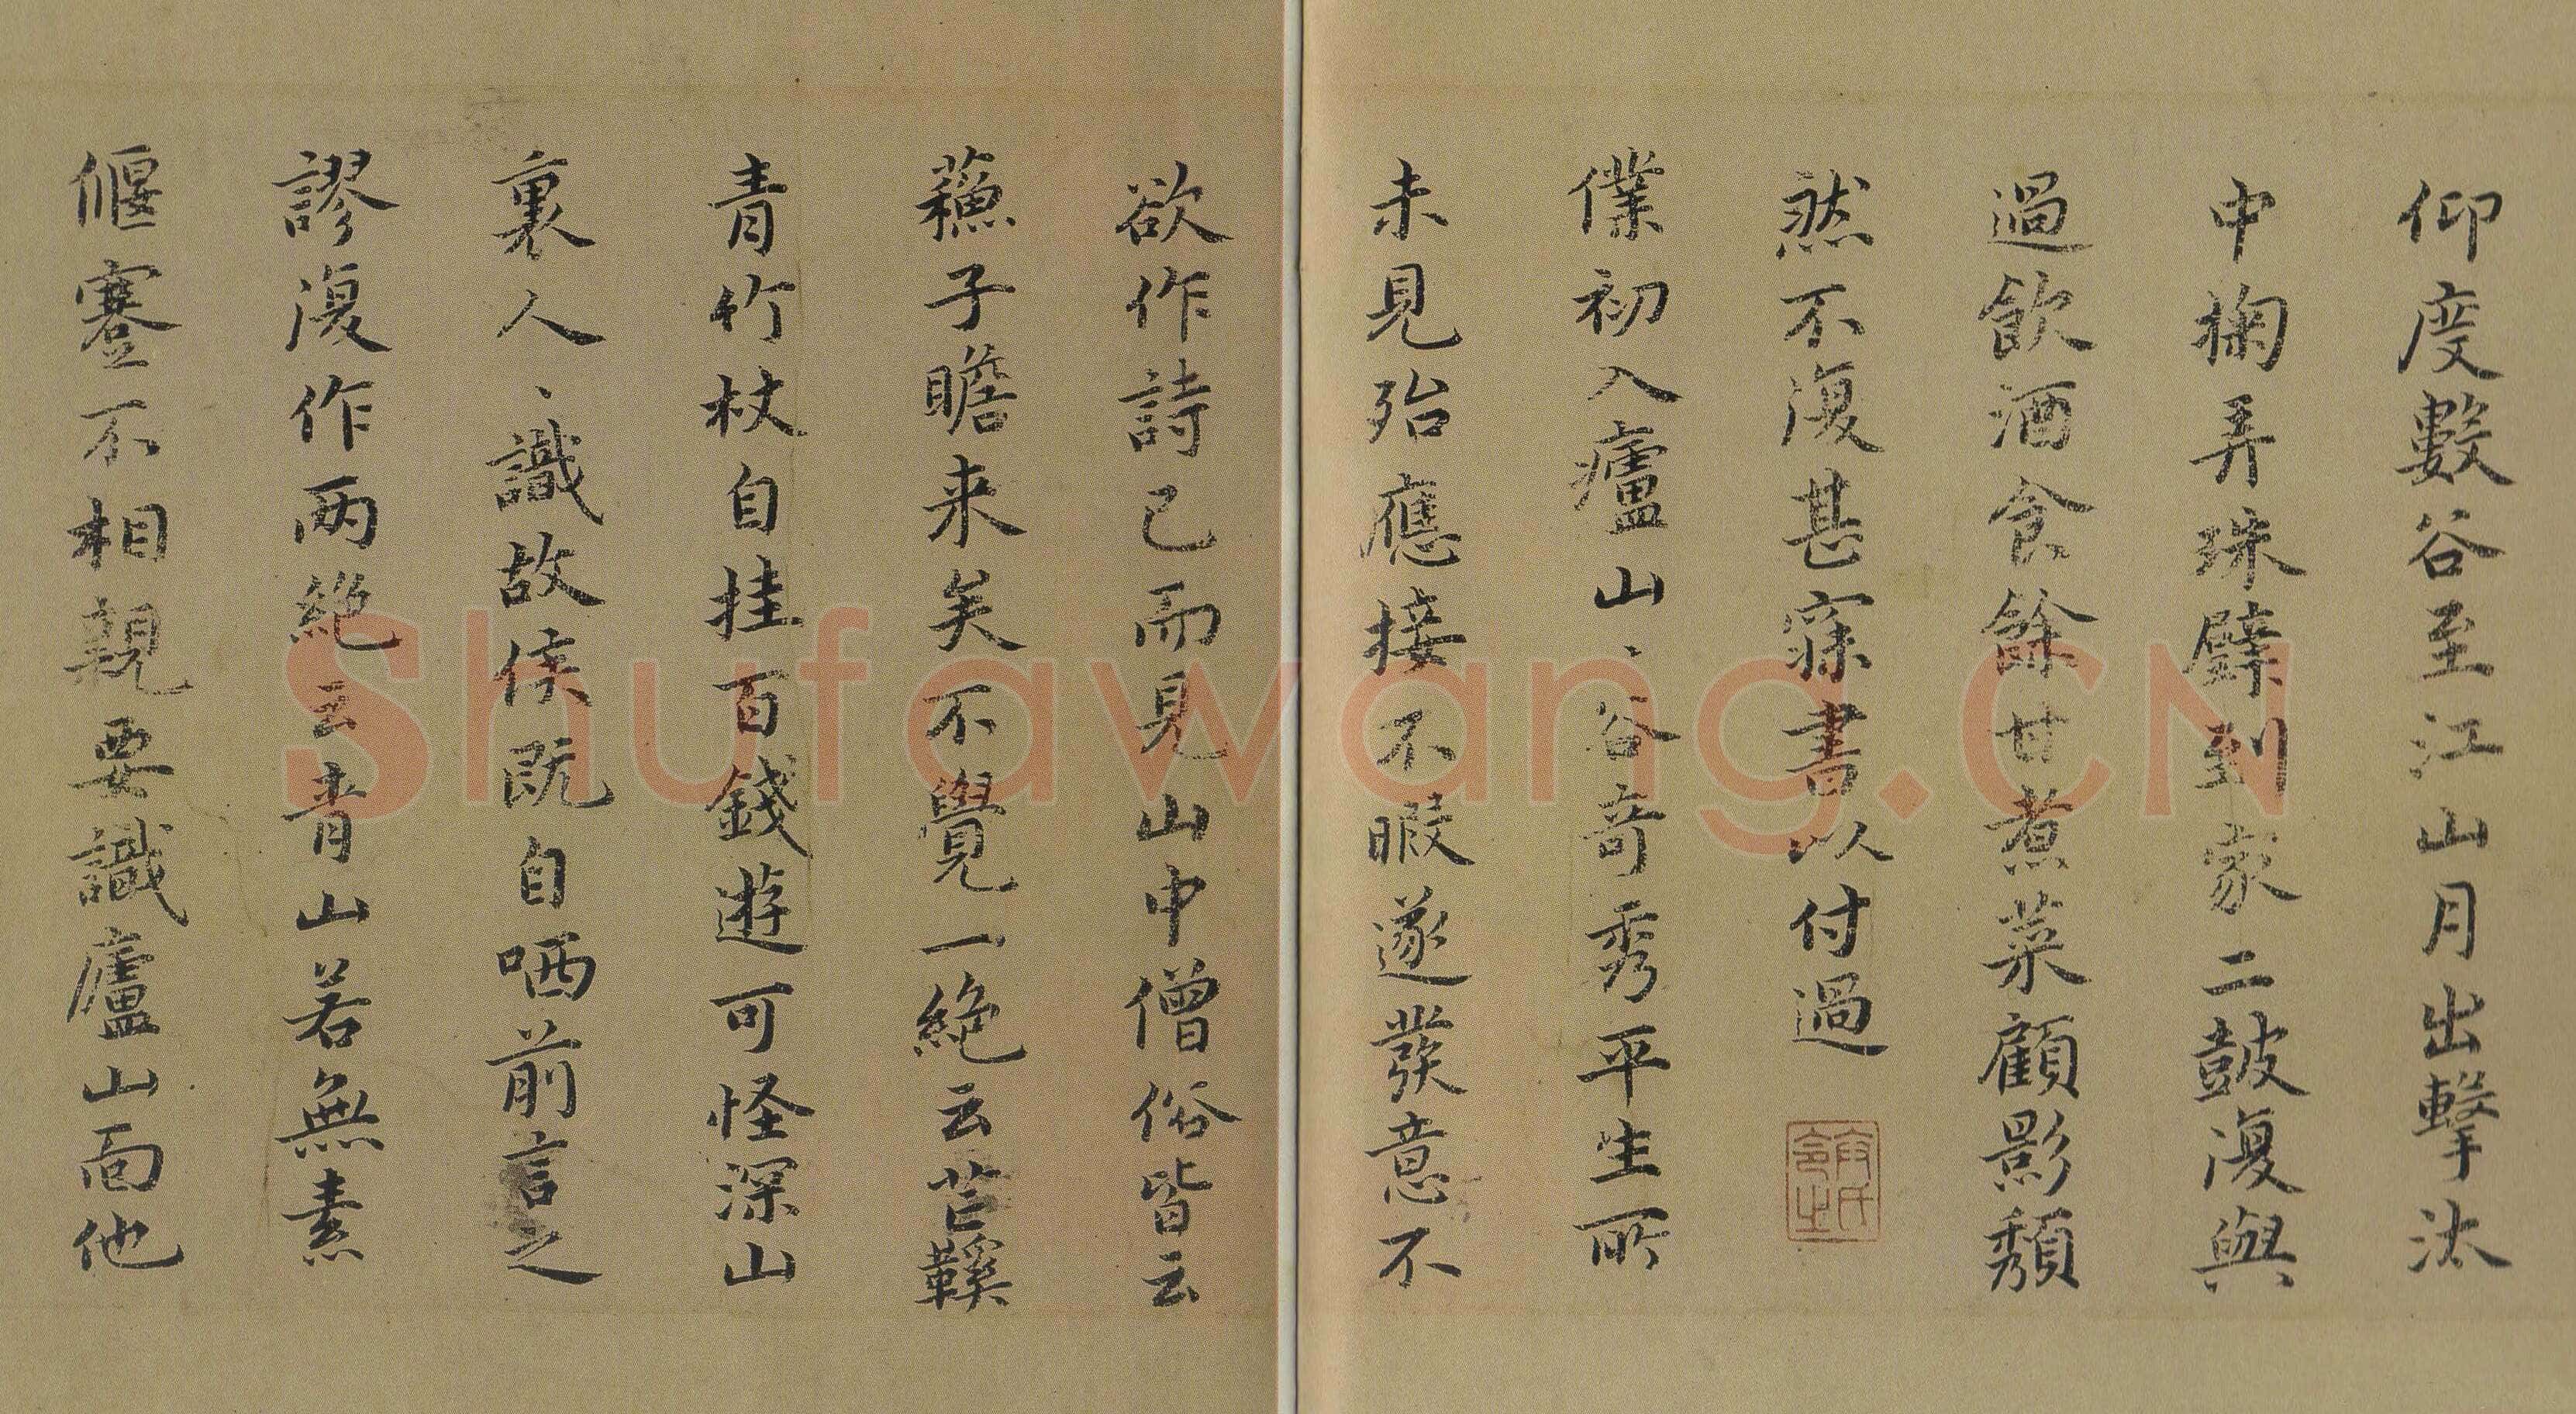 仰度數谷至江山月出擊汰
中掬弄珠璧到家二鼓復與
過飲酒食餘甘煮菜顧影頹
然不復甚寐書以付過
僕初入廬山、谷奇秀平生所
未見殆應接不暇遂發意不
欲作詩已而見山中僧俗皆云
蘓子瞻来矣不覺一絶云芒鞵
青竹杖自挂百錢遊可怪深山
裏人、識故侯既自哂前言之
謬復作两絶云青山若無素
偃蹇不相親要識廬山面他
Shufawang.CN